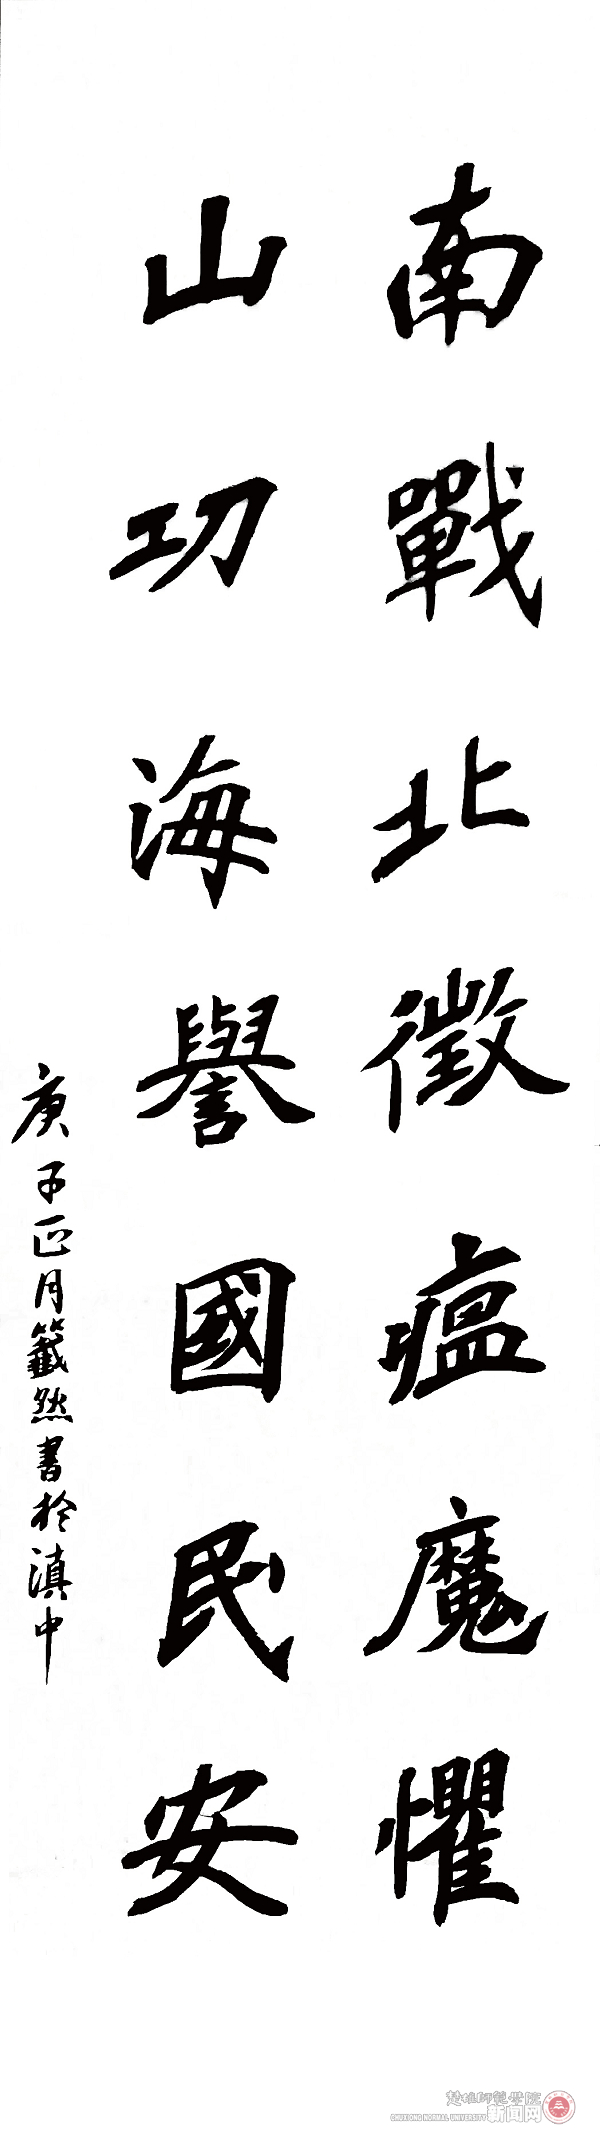 南戰北徵瘟魔懼
山功海譽國民安
庚子正月籤然書於滇中
楚雄師範學院
新闻网
CHUXIONG NORMAL UNIVERSITY